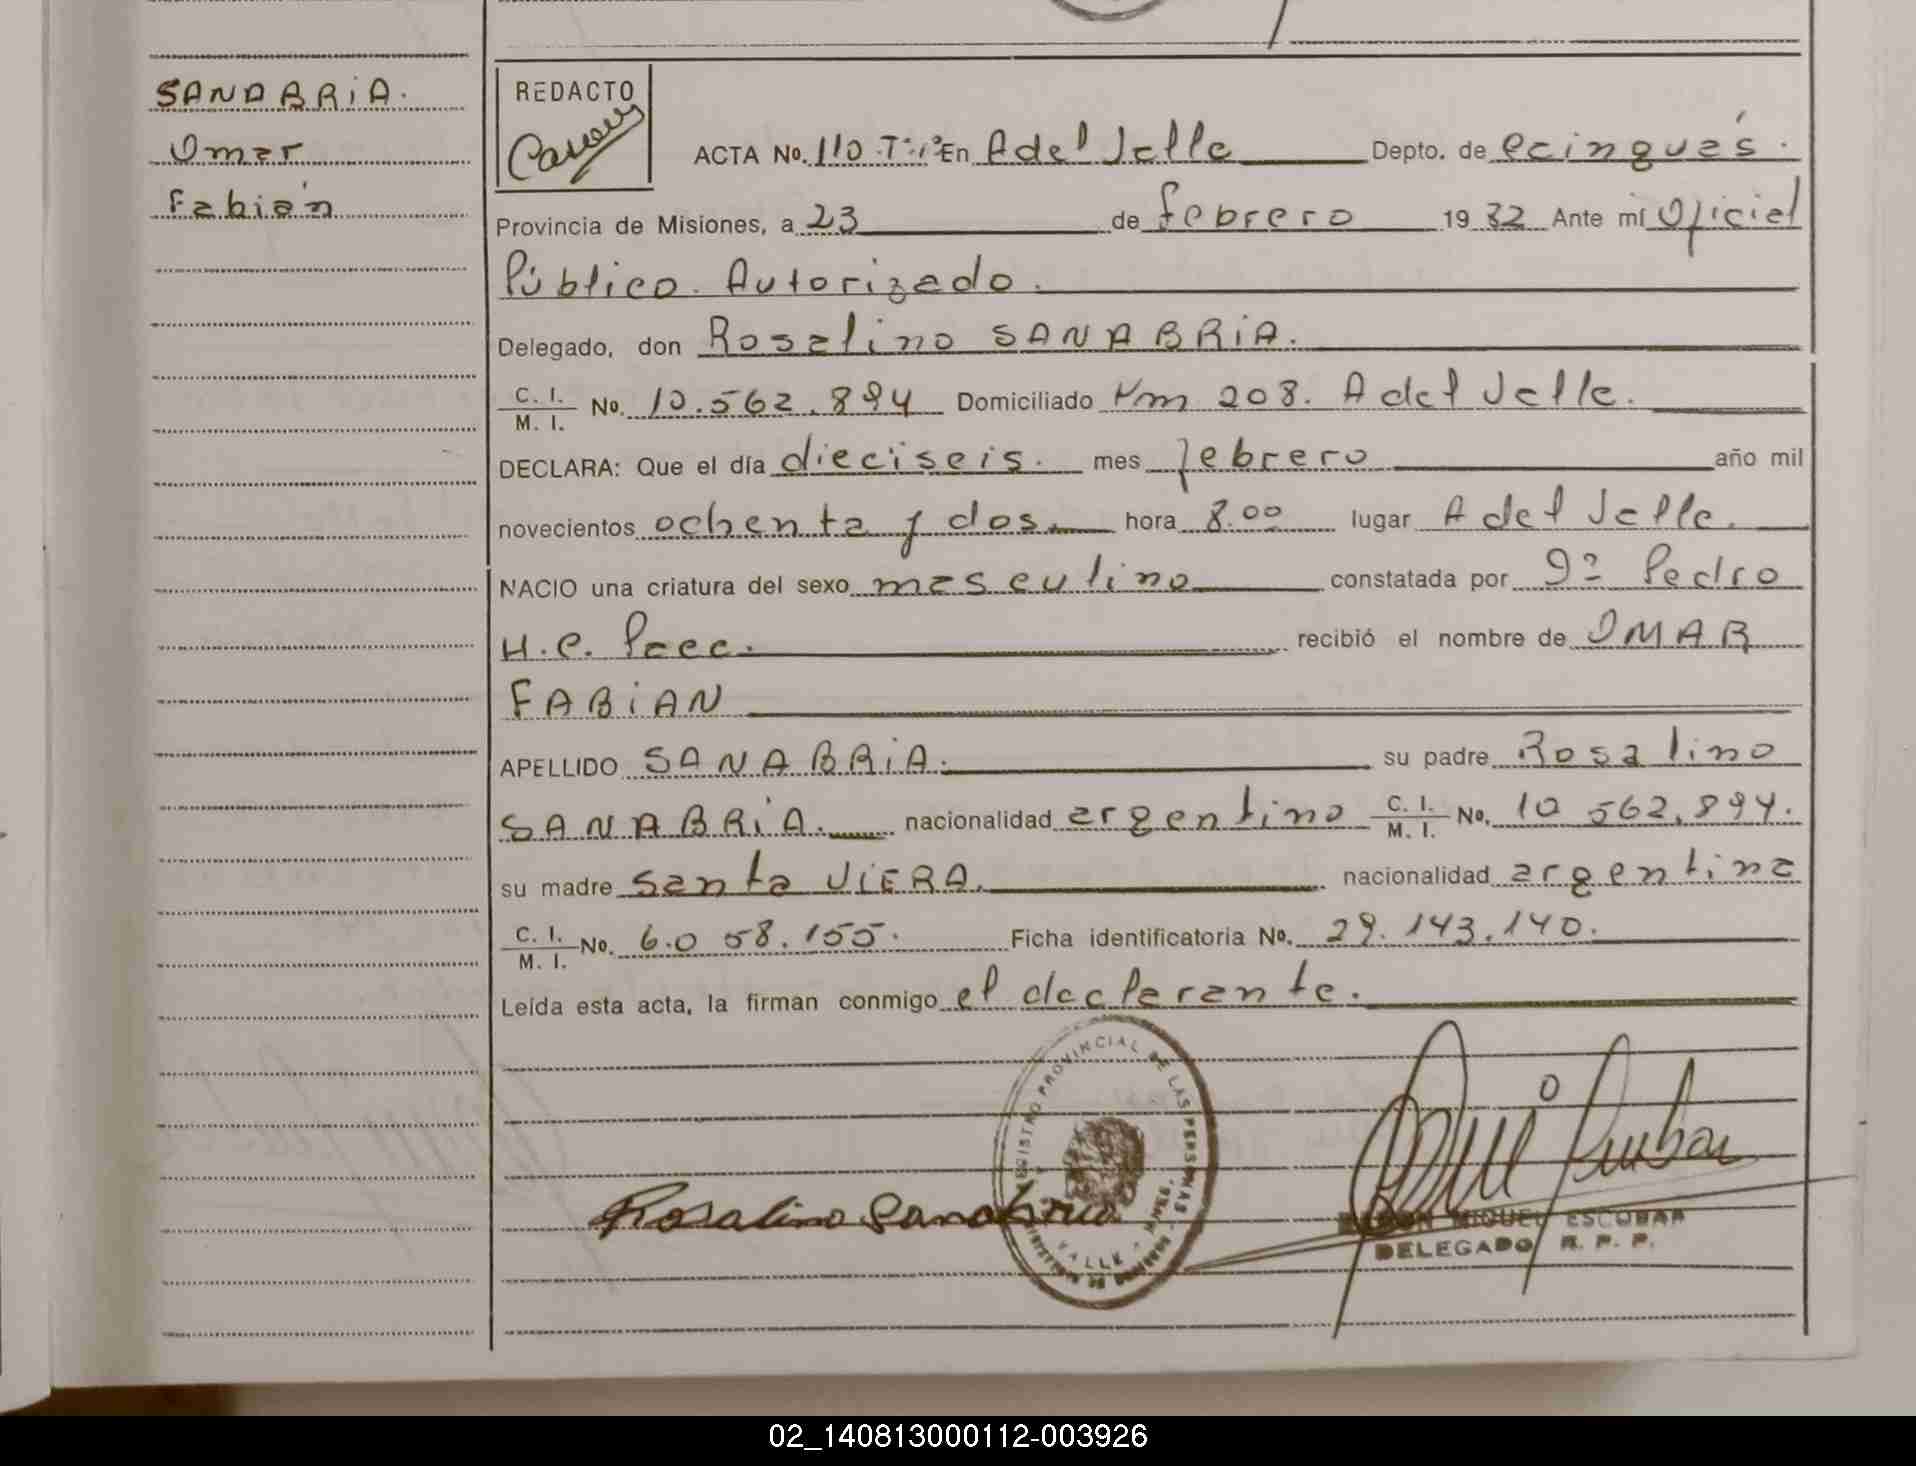 SANABRIA.
Omar
Fabián
REDACTO
ACTA No. 110 T:1º En A del Valle Depto. de Cainguás.
Provincia de Misiones, a 23 de febrero 1982 Ante mí Oficial
Público Autorizado.
Delegado, don Rosalino SANABRIA.
C. I.
M. I. No. 10.562.894 Domiciliado Km 208. A del Valle.
DECLARA: Que el día dieciseis. mes febrero año mil
novecientos ochenta y dos. hora 8.00 lugar A del Valle.
NACIO una criatura del sexo masculino constatada por Pedro
H.C. recibió el nombre de OMAR
FABIAN
APELLIDO SANABRIA. su padre Rosalino
SANABRIA. nacionalidad argentino C. I. M. I. No. 10 562.894.
su madre Santa VIERA. nacionalidad argentina
C. I.
M. I. No. 6.058.155. Ficha identificatoria No. 29.143.140.
Leída esta acta, la firman conmigo el declarante.
REGISTRO PROVINCIAL DE LAS PERSONAS
VALLE
Rosalino Sanabria
RAMON MIGUEL ESCOBAR
DELEGADO R. P. P.
02_140813000112-003926